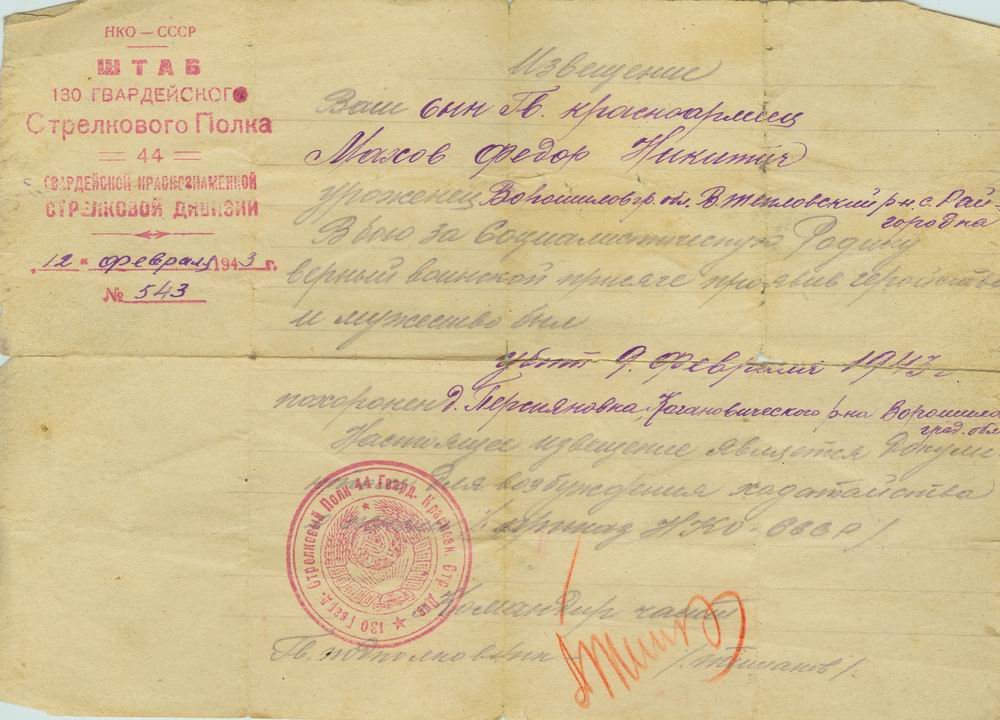 НКО — СССР
ШТАБ
130 ГВАРДЕЙСКОГО
Стрелкового Полка
44
ГВАРДЕЙСКОЙ КРАСНОЗНАМЕННОЙ
СТРЕЛКОВОЙ ДИВИЗИИ
„12" февраля 1943 г.
№ 543
Извещение
Ваш сын Гв. красноармеец
Махов Федор Никитич
уроженец Ворошиловгр. обл. В. Тепловский р-н с. Рай-
городка
В бою за Социалистическую Родину
верный воинской присяге проявив геройство
и мужество был
убит 9. февраля 1943 г.
похоронен д. Персияновка, Кагановического р-на Ворошилов
град. обл.
Настоящее извещение является докумен
для возбуждения ходатайства
приказ НКО-СССР/
130 Гвард. Стрелковый Полк 44 Гвард. Краснозн. Стр. Див.
Командир части
Гв. подполковник /Тишаков/.